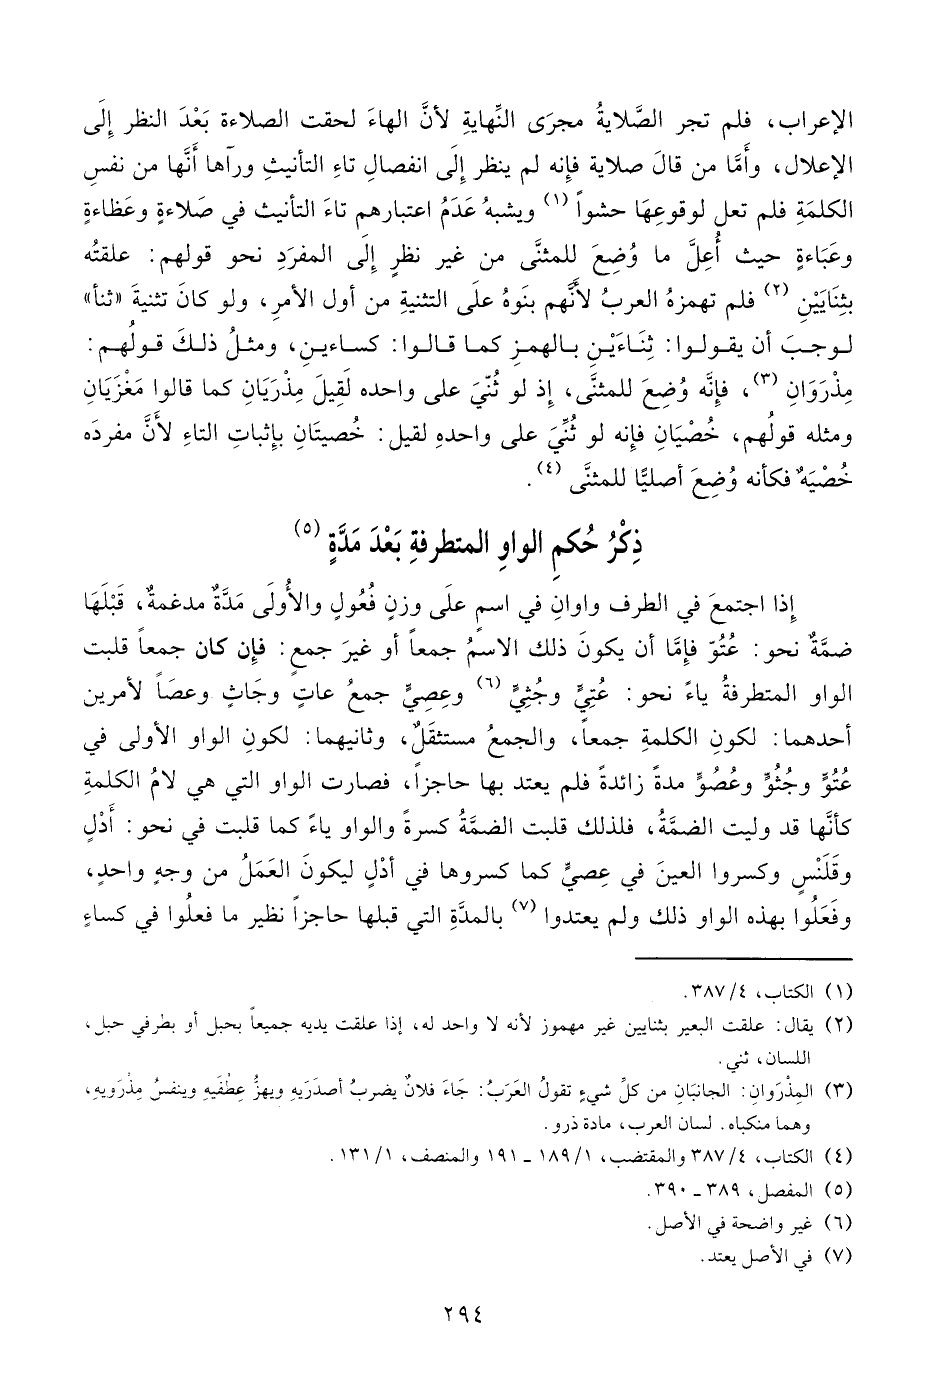 الإعراب، فلم تجر الصَّلايةُ مجرَى النِّهايةِ لأنَّ الهاءَ لحقت الصلاءة بَعْدَ النظر إِلَى
الإعلال، وأَمَّا من قالَ صلاية فإنه لم ينظر إِلَى انفصالِ تاءِ التأنيثِ ورآها أَنَّها من نفسِ
الكلمَةِ فلم تعل لوقوعِهَا حشواً (١) ويشبهُ عَدَمُ اعتبارهم تاءَ التأنيث في صَلاءةٍ وعَظاءةٍ
وعَبَاءةٍ حيث أُعِلَّ ما وُضِعَ للمثنَّى من غير نظرٍ إِلَى المفرَدِ نحو قولهم: علقتُه
بثِنَايَيْنِ (٢) فلم تهمزهُ العربُ لأنَّهم بنَوهُ علَى التثنيةِ من أول الأمرِ، ولو كانَ تثنيةَ «ثنأ»
لوجبَ أن يقولوا: ثِنَاءَيْنِ بالهمزِ كما قالوا: كساءينِ، ومثلُ ذلكَ قولُهم:
مِذْرَوَانِ (٣)، فإنَّه وُضِعَ للمثنَّى، إذ لو ثُنّيَ على واحده لَقِيلَ مِذْرَيَانِ كما قالوا مَغْزَيَانِ
ومثله قولُهم، خُصْيَانِ فإنه لو ثُنِّيَ على واحدهِ لقيل: خُصيتَانِ بإثباتِ التاءِ لأنَّ مفردَه
خُصْيَةٌ فكأنه وُضِعَ أصليًّا للمثنَّى (٤).
ذِكْرُ حُكمِ الواوِ المتطرفةِ بَعْدَ مَدَّةٍ (٥)
إِذا اجتمعَ في الطرف واوانِ في اسمٍ علَى وزنِ فُعُولٍ والأُولَى مَدَّةٌ مدغمةٌ، قَبْلَهَا
ضمَّةٌ نحو: عُتُوّ فإمَّا أن يكونَ ذلك الاسمُ جمعاً أو غيرَ جمع: فإن كان جمعاً قلبت
الواو المتطرفةُ ياءً نحو: عُتِيٍّ وجُثِيٍّ (٦) وعِصِيٍّ جمعُ عاتٍ وجَاثٍ وعصَاً لأمرين
أحدهما: لكونِ الكلمةِ جمعاً، والجمعُ مستثقَلٌ، وثانيهما: لكونِ الواو الأولى في
عُتُوٍّ وجُثُوٍّ وعُصُوٍّ مدةً زائدةً فلم يعتد بها حاجزاً، فصارت الواو التي هي لامُ الكلمةِ
كأنَّها قد وليت الضمَّةُ، فلذلك قلبت الضمَّةُ كسرةً والواو ياءً كما قلبت في نحو: أَدْلٍ
وقَلَنْسٍ وكسروا العينَ في عِصيٍّ كما كسروها في أدْلٍ ليكونَ العَمَلُ من وجهٍ واحدٍ،
وفَعَلُوا بهذه الواو ذلك ولم يعتدوا (٧) بالمدَّةِ التي قبلها حاجزاً نظير ما فعلُوا في كساءٍ
(١) الكتاب، ٤/ ٣٨٧.
(٢) يقال: علقت البعير بثنايين غير مهموز لأنه لا واحد له، إذا علقت يديه جميعاً بحبل أو بطرفي حبل،
اللسان، ثني.
(٣) المِذْرَوان: الجانبَانِ من كلِّ شيءٍ تقولُ العَرَبُ: جَاءَ فلانٌ يضربُ أصدَرَيهِ ويهزُّ عِطْفَيهِ وينفسُ مِذْرَويهِ،
وهما منكباه. لسان العرب، مادة ذرو.
(٤) الكتاب، ٤/ ٣٨٧ والمقتضب، ١/ ١٨٩ ـ ١٩١ والمنصف، ١/ ١٣١.
(٥) المفصل، ٣٨٩ ـ ٣٩٠.
(٦) غير واضحة في الأصل.
(٧) في الأصل يعتد.
٢٩٤